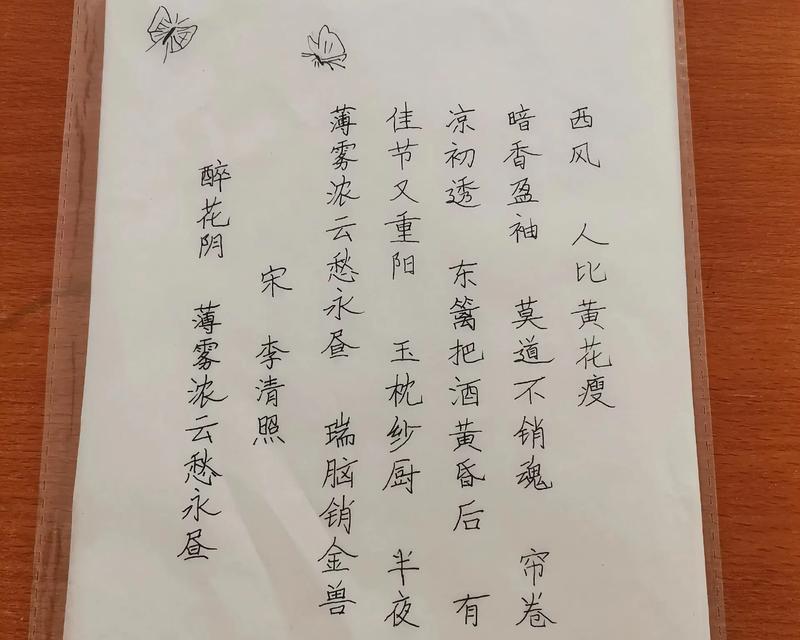 醉花阴 薄雾浓云愁永昼
宋 李清照
薄雾浓云愁永昼 瑞脑销金兽
佳节又重阳 玉枕纱厨 半夜
凉初透 东篱把酒黄昏后 有
暗香盈袖 莫道不销魂 帘卷
西风 人比黄花瘦